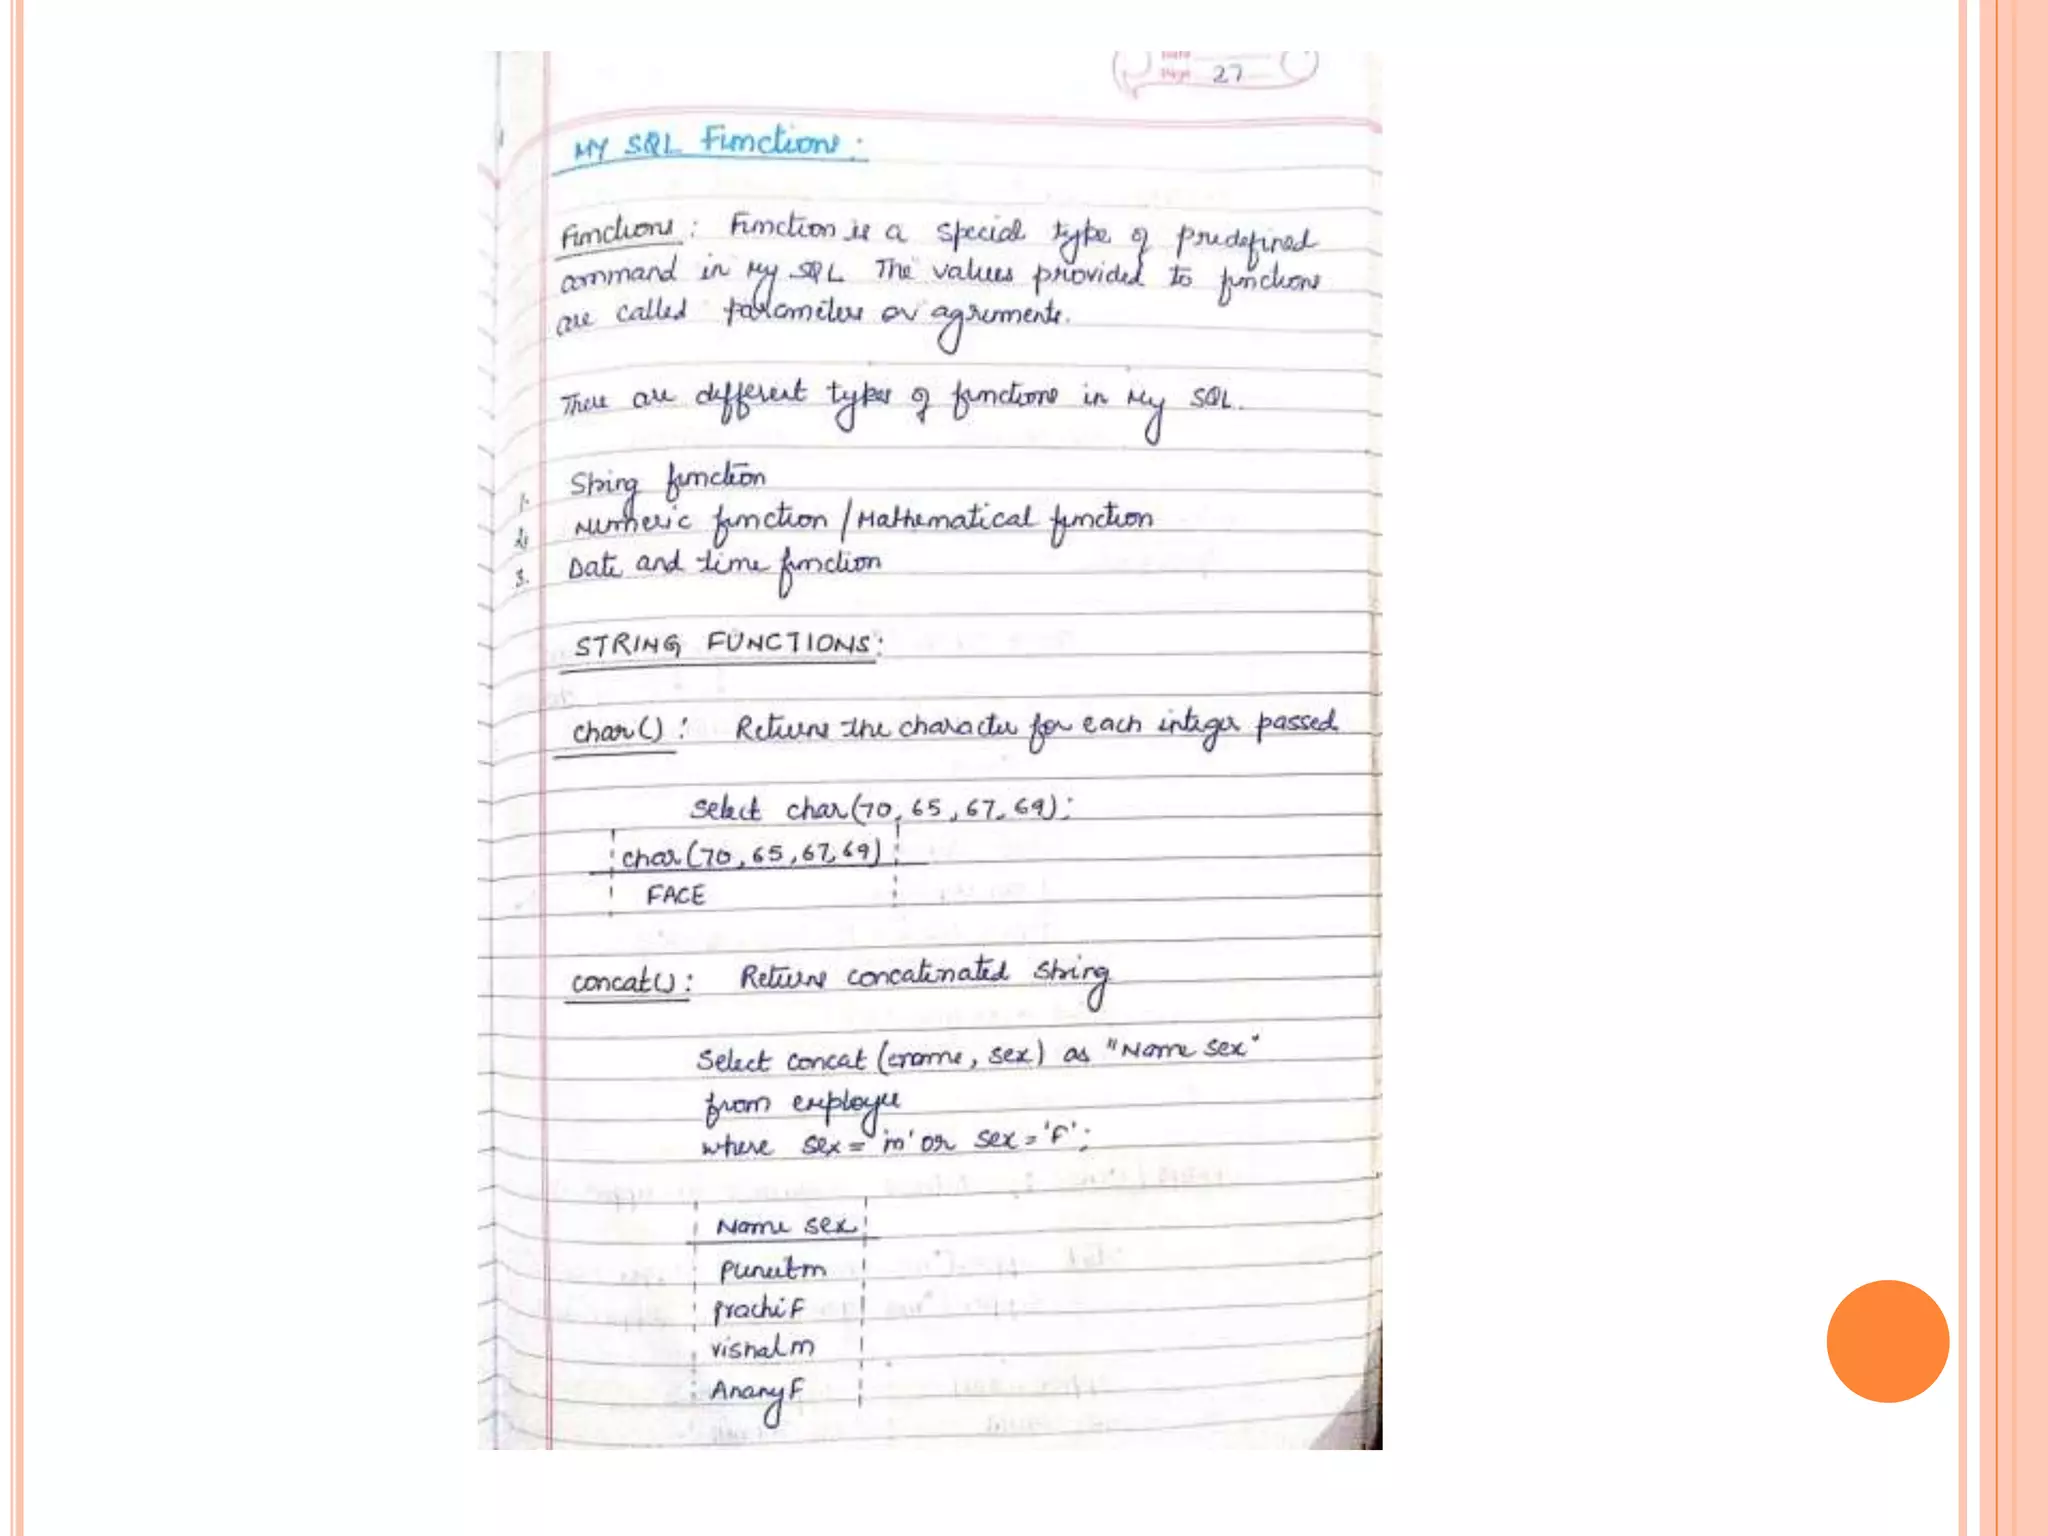 Date
Page 27
MY SQL Functions:
Functions: Function is a special type of predefined
command in My SQL The values provided to functions
are called parameters or agruments.
There are different types of functions in My SQL.
1. String function
2. Numeric function / Mathematical function
3. Date and time function
STRING FUNCTIONS:
char(): Returns the character for each integer passed
Select char(70, 65, 67, 69);
char(70, 65, 67, 69)
FACE
concat(): Returns concatinated string
Select concat (ename, sex) as "Name sex"
from employee
where sex = 'm' or sex = 'F';
Name sex
Puneetm
prachiF
vishalm
AnanyF